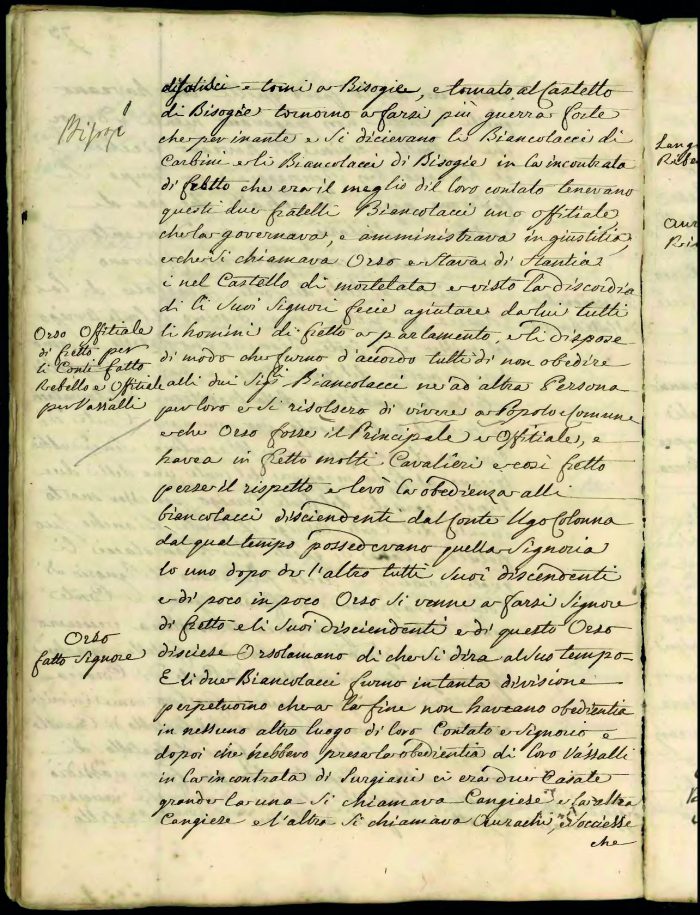 difatisci e torni a Bisogie, e tornato al Castello
di Bisogie tornorno a farsi più guerra forte
che per inante e si dicievano li Biancolacci di
Carbini e li Biancolacci di Bisogie in la incontrata
di fretto che era il meglio dil loro contato tenevano
questi due fratelli Biancolacci uno offitiale
che la governava, e amministrava in giustitia,
e che si chiamava Orso e stava di stantia
i nel Castello di mortetata e visto la discordia
di li Suoi Signori fecie agiutare da lui tutti
li homini di fretto a parlamento, e li dispose
di modo che furno d'accordo tutti di non obedire
alli dui Sigli Biancolacci ne ad altra Persona
per loro e si risolsero di vivere a Popolo e Comune
e che Orso fosse il Principale e Offitiale, e
havea in fretto molti Cavalieri e così fretto
perse il rispetto e levò la obedienza alli
biancolacci disciendenti dal Conte Ugo Colonna
dal qual tempo possedevano quella Signoria
lo uno dopo de l'altro tutti Suoi discendenti
e di poco in poco Orso si venne a farsi Signore
di fretto e li Suoi disciendenti e di questo Orso
disciese Orsolamano di che si dira al Suo tempo
E li due Biancolacci furno in tanta divisione
perpetuorno che a la fine non haveano obedientia
in nessuno altro luogo di loro Contato e Signorio e
dopoi che hebbero persa la obedientia di loro Vassalli
in la incontrata di Surgiani ci era due Casate
grande la una si chiamava Cangiese e la altra
Cangiese e l'altra si chiamava Aurachi,
che
Bisogi
Orso Offitiale
di fretto per
li Conti fatto
Rebello e Offitiale
per Vassalli
Orso
fatto Signore